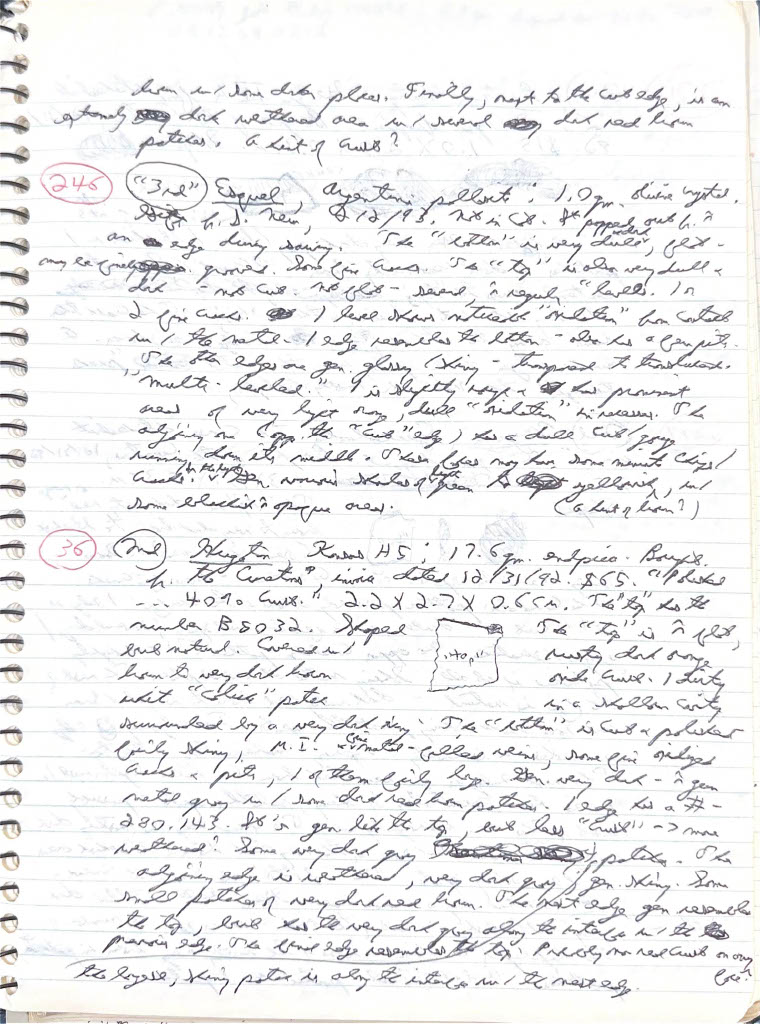 brown w/ some darker places. Finally, next to the cut edge, is an
extremely dark weathered area w/ several dark red brown
patches. A hint of crust?
246 "3rd" Esquel, Argentina pallasite; 1.0 gm. olivine crystal.
2/12/93. Not in cat. It popped out
an edge during sawing. The "bottom" is very dull, flat -
may be grooves. Some fine cracks. The "top" is also very dull &
dark - not cut. Not flat - several, "levels. 1 or
2 fine cracks. 1 level shows noticeable "oxidation" from contact
w/ the metal. 1 edge resembles the bottom - also has a few pits.
The other edges are gen. glassy/shiny - transparent to translucent.
"multi-leveled." 1 is slightly rough & has prominent
areas of very light orange, dull "oxidation" in recesses. The
adjoining one (opp. the "cut" edge) has a dull cut/gouge
running down its middle. These faces may have some minute chips/
cracks. Gen. various shades of green to yellowish, w/
some blackish opaque areas. (a hint of brown?)
36 2nd Hugoton Kansas H5; 17.6 gm. endpiece. Bought
fr. the invoice dated 12/31/92. $65. "Polished
... 40% crust." 2.2 X 2.7 X 0.6 cm. The "top" has the
number B8032. Shaped "top" The "top" is flat,
but natural. Covered w/ rusty dark orange
brown to very dark brown oxide crust. 1 dirty
white "caliche" patch in a shallow cavity
surrounded by a very dark ring. The "bottom" is cut & polished
fairly shiny, M.I. metal-filled veins, some fine oxidized
cracks & pits, 1 of them fairly large. Gen. very dark - gun
metal gray w/ some dark red brown patches. 1 edge has a # -
280.143. It's gen. like the top, but less "crust" -> more
weathered? Some very dark gray patches. The
adjoining edge is weathered, very dark gray, gen. shiny. Some
small patches of very dark red brown. The next edge gen. resembles
the top, but has the very dark gray along the interface w/ the
previous edge. The final edge resembles the top. Probably no real crust on any
face.
The largest, shiny patch is along the interface w/ the next edge.